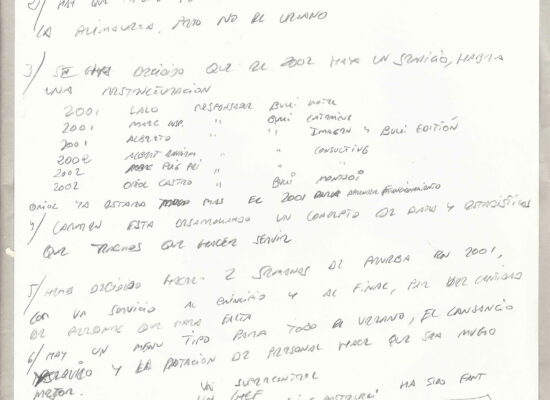 2/ HAY QUE
LA ALIMENTARIA, PERO NO EL VERANO
3/ SE HA DECIDIDO QUE EL 2002 HAYA UN SERVICIO, HABRA
UNA RESTRUCTURACION
2001 LALO RESPONSABLE BULLI HOTEL
2001 MARC " BULLI CATERING
2001 ALBERTO " " IMAGEN Y BULLI EDITIÓN
2002 ALBERT " " CONSULTING
2002 MARC PUIG PEI " "
2002 ORIOL CASTRO " BULLI MONTJOI
ORIOL YA ESTARA MAS EL 2001 PARA FUNCIONAMIENTO
4/ CARMEN ESTA DESARROLLANDO UN CONCEPTO DE DATOS Y ESTADISTICAS
QUE TENEMOS QUE HACER SERVIR
5/ HEMOS DECIDIDO HACER 2 SEMANAS DE PRUEBA EN 2001,
CON UN SERVICIO AL PRINCIPIO Y AL FINAL, POR VER CANTIDAD
DE PERSONAL QUE HARA FALTA
6/ HAY UN MENU TIPO PARA TODO EL VERANO, EL CANSANCIO
Y LA ROTACION DE PERSONAL HACE QUE SEA MUCHO
MEJOR. UN SUPERCONTROL
UN CHEF HA SIDO FANT